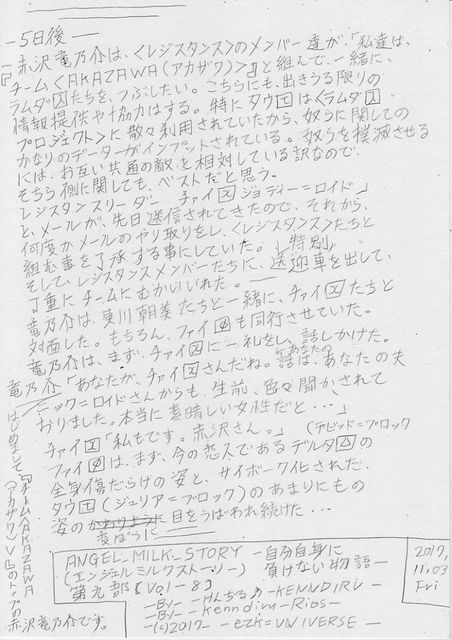 —5日後—
赤沢竜乃介は、〈レジスタンス〉のメンバー達が、「私達は、
『チーム〈AKAZAWA(アカザワ)〉』と組んで、一緒に、
ラムダ囚たちを、つぶしたい。こちらにも、出きうる限りの
情報提供や協力はする。特にタウエは〈ラムダ囚
プロジェクト〉に散々利用されていたから、奴らに関しての
かなりのデーターがインプットされている。奴らを撲滅させる
には、お互い共通の敵を相対している訳なので、
そちら側に関しても、ベストだと思う。
レジスタンスリーダー チャイ☒ ジョディー=ロイド」
と、メールが、先日送信されてきたので、それから、
何度かメールのやり取りをし、〈レジスタンス〉たちと
組む事を了承する事にしていた。
そして、レジスタンスメンバーたちに、特別送迎車を出して、
丁重にチームにむかいいれた。
竜乃介は、東川朝美たちと一緒に、チャイ☒たちと
対面した。もちろん、ファイ∅も同行させていた。
竜乃介は、まず、チャイ☒に一礼をし、話しかけた。
竜乃介「あなたが、チャイ☒さんだね。話は、あなたの夫
ニック=ロイドさんからも、生前、色々聞かされて
おりました。本当に素晴しい女性だと…」
はじめまして、『チームAKAZAWA
(アカザワ)V』のトップの
赤沢竜乃介です。
チャイ☒「私もです。赤沢さん。」
(デビッド=ブロック
ファイ∅は、まず、今の恋人であるデルタ△の
全身傷だらけの姿と、サイボーグ化された、
タウエ(ジュリア=ブロック)のあまりにもの
姿の変ぼうに目をうばわれ続けた…
ANGEL_MILK_STORY —自分自身に
(エンジェルミルクストーリー) 負けない物語—
第九部【Vol—8】
—By— —けんぢる♪—KENNDIRU—
—By— —Kenndiru-Rios—
—(c)2017— —ezk=UNIVERSE—
2017,
11,03
Fri